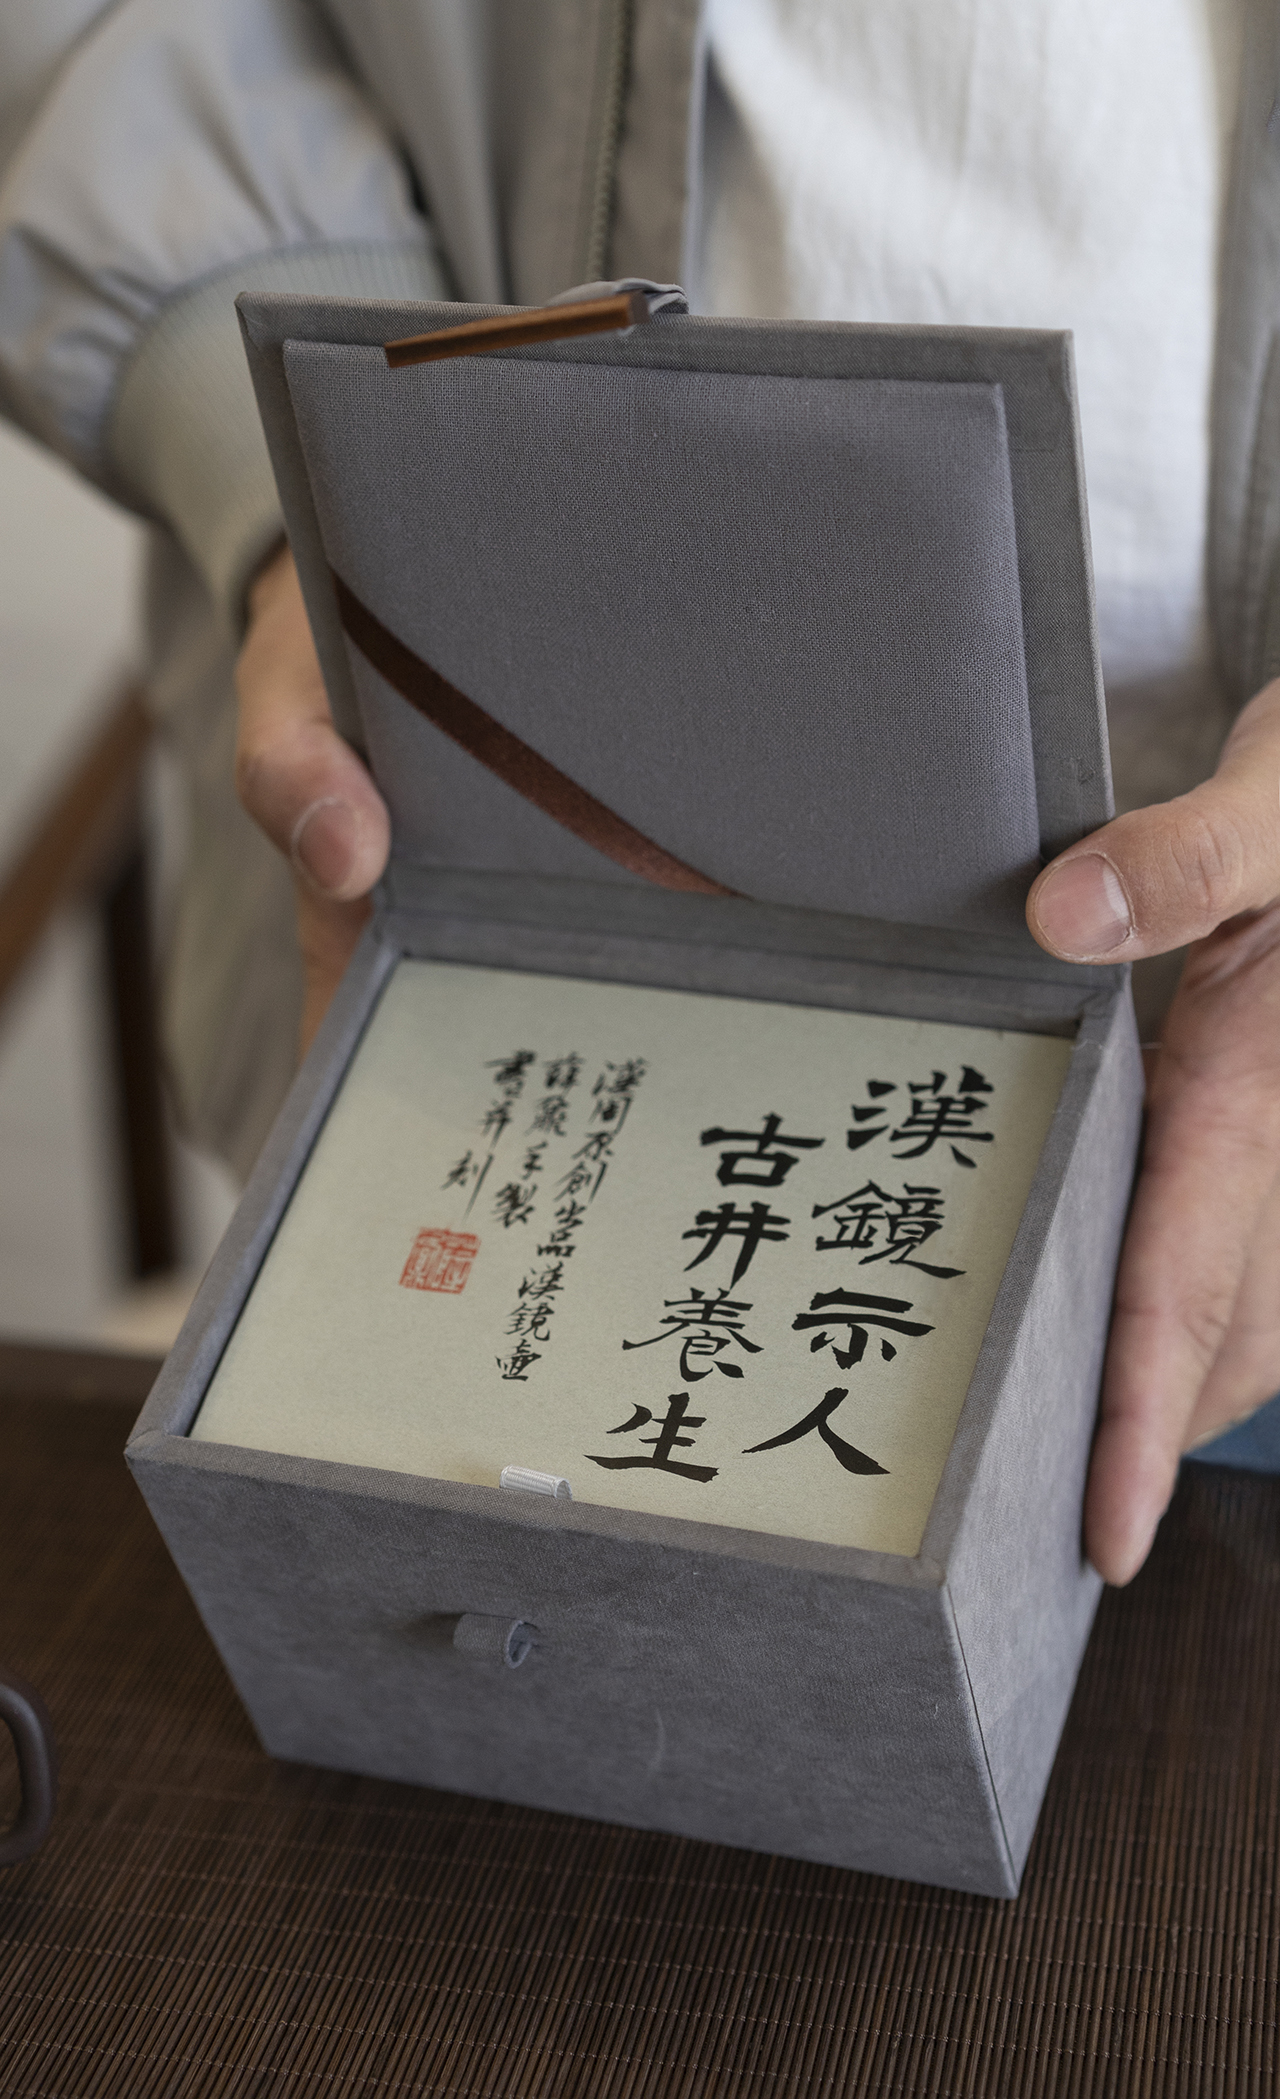 漢鏡示人
古井養生
漢陶原創出品漢鏡壺
手製
書并刻